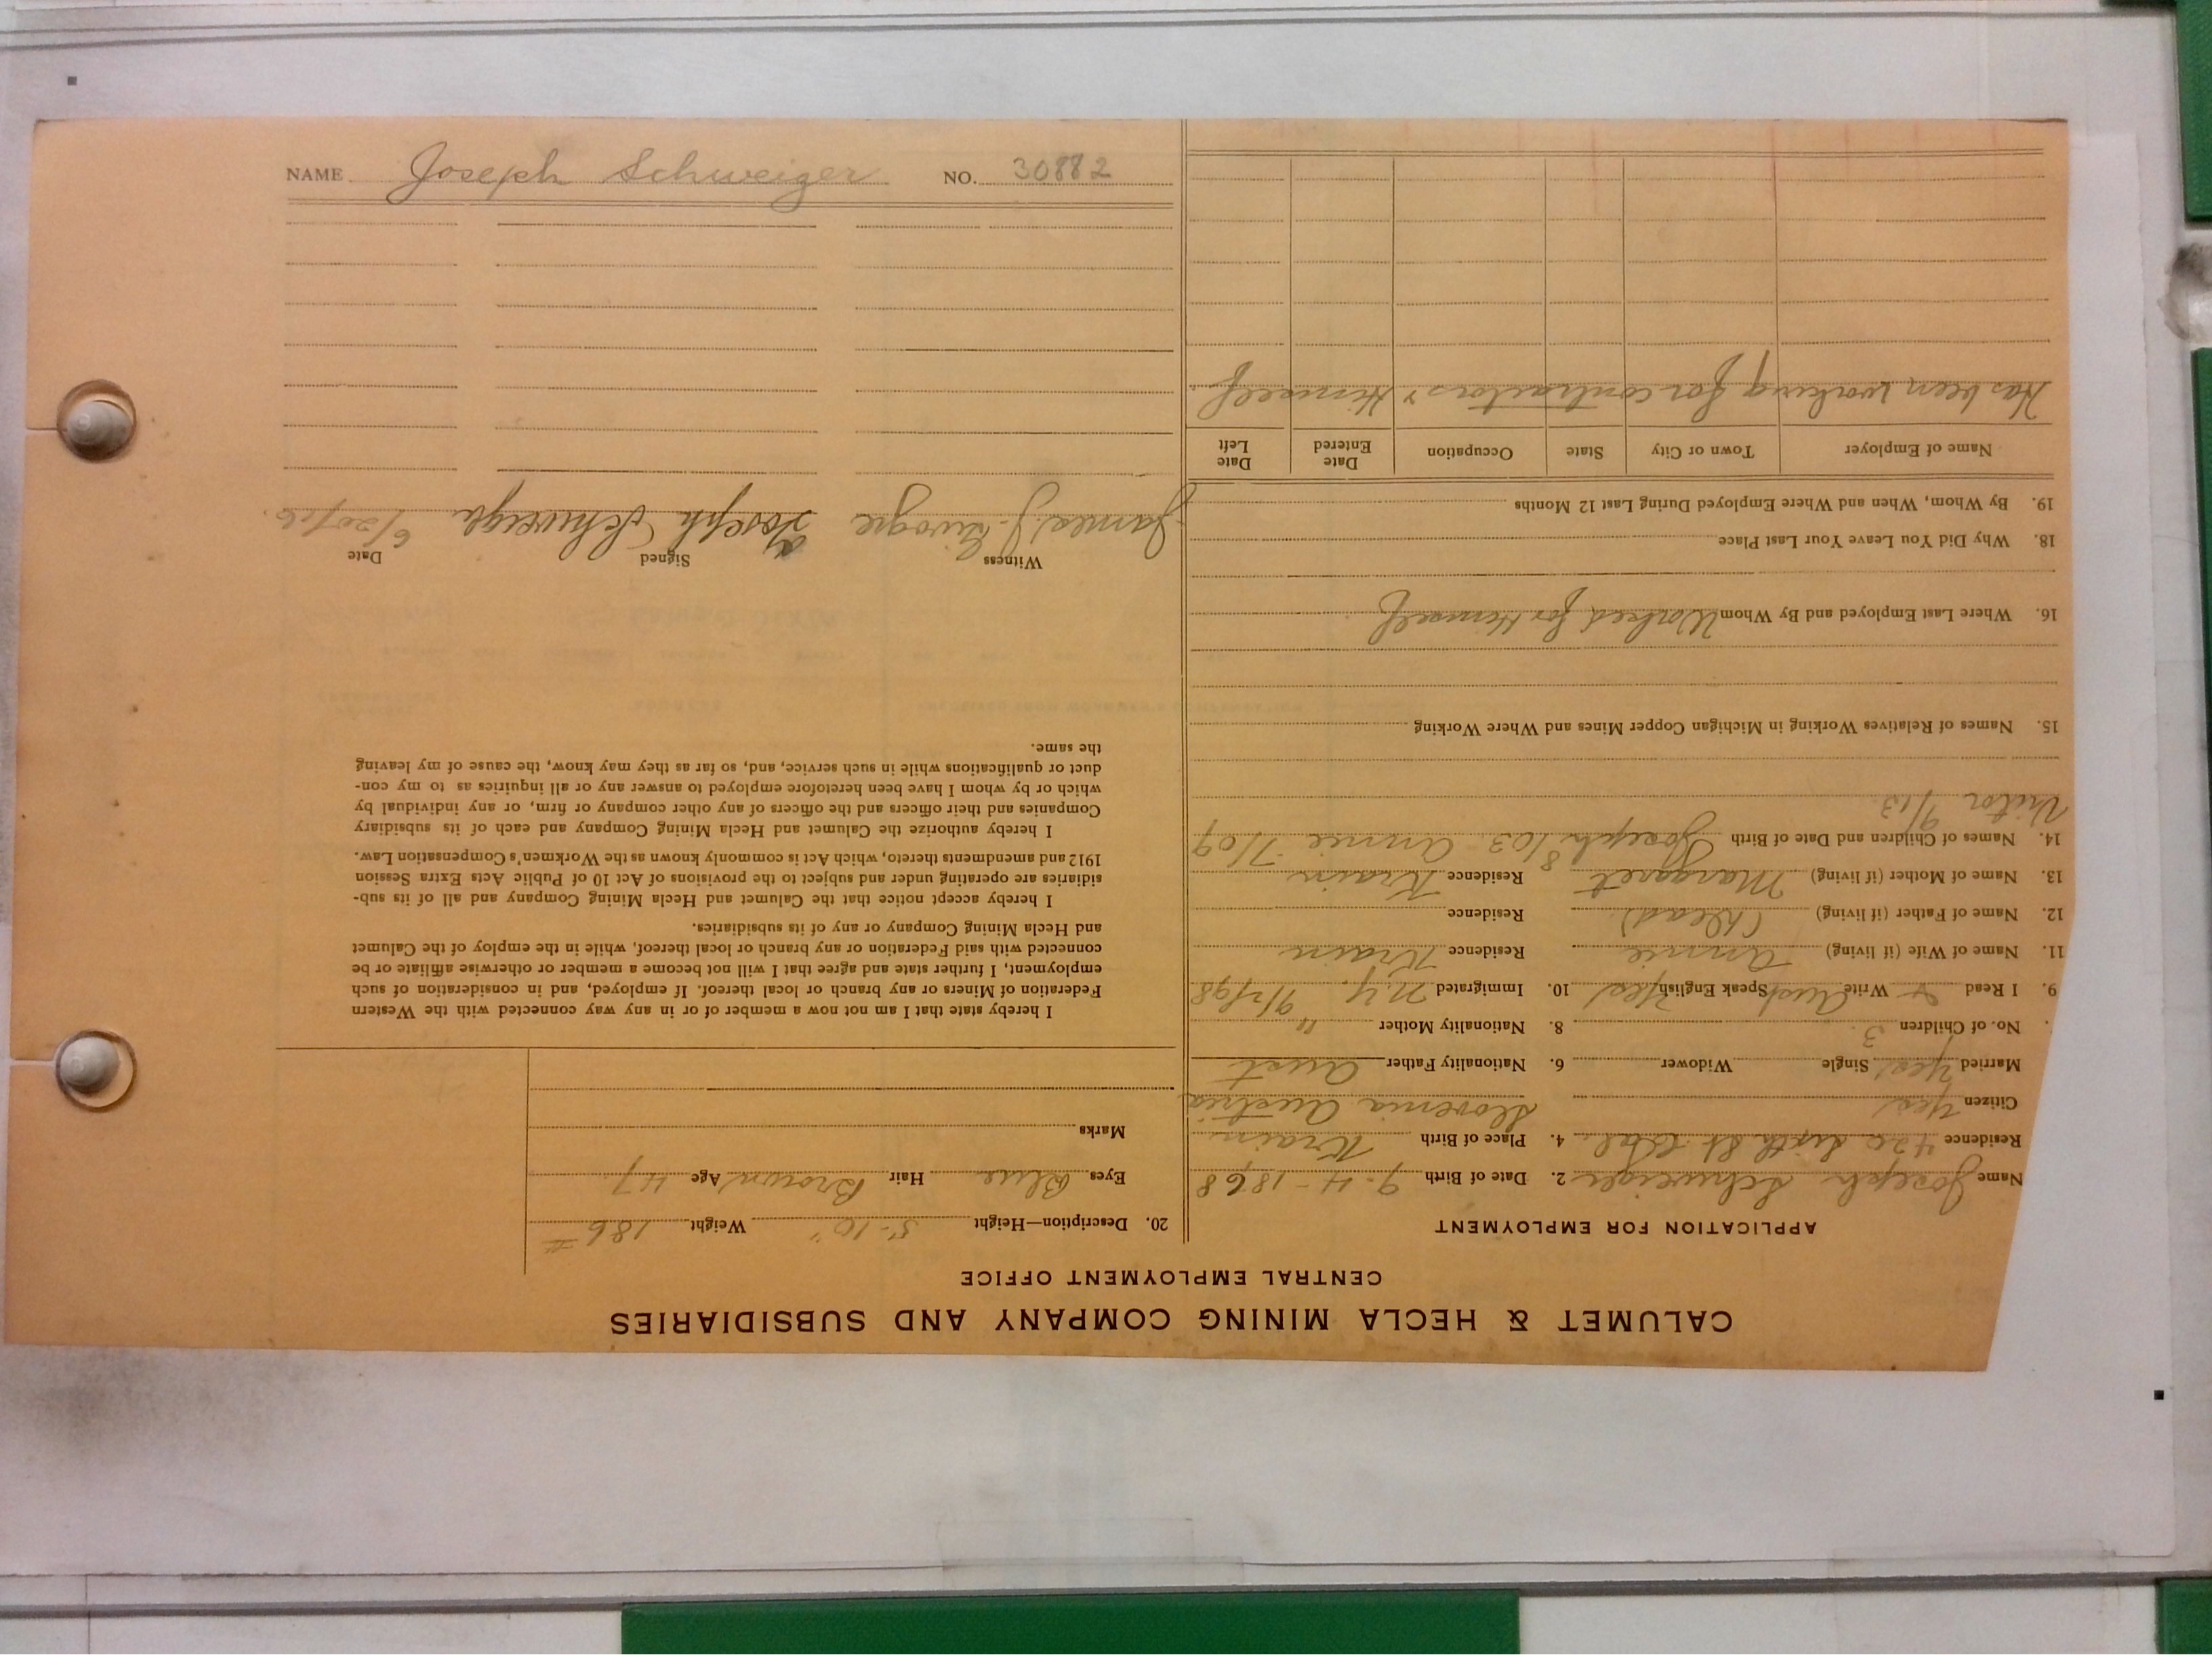 CALUMET & HECLA MINING COMPANY AND SUBSIDIARIES
CENTRAL EMPLOYMENT OFFICE
APPLICATION FOR EMPLOYMENT
Name Joseph Schweiger 2. Date of Birth 9-4-1868
Residence 420 Sixth St Cal. 4. Place of Birth Krain
Citizen Yes Slovenia Austria
Married Yes Single Widower 6. Nationality Father Aust
No. of Children 3. 8. Nationality Mother "
9. I Read & Write Aust Speak English Yes 10. Immigrated N.Y. 9/2/98
11. Name of Wife (if living) Annie Residence Krain
12. Name of Father (if living) (Dead) Residence
13. Name of Mother (if living) Margaret Residence Krain
14. Names of Children and Date of Birth Joseph 8/03 Annie 7/09
Victor 9/13.
15. Names of Relatives Working in Michigan Copper Mines and Where Working
16. Where Last Employed and By Whom Worked for Himself
18. Why Did You Leave Your Last Place
19. By Whom, When and Where Employed During Last 12 Months
Name of Employer Town or City State Occupation Date Entered Date Left
Has been working for contractors & Himself
20. Description—Height 5'-10" Weight 186 #
Eyes Blue Hair Brown Age 47
Marks
I hereby state that I am not now a member of or in any way connected with the Western
Federation of Miners or any branch or local thereof. If employed, and in consideration of such
employment, I further state and agree that I will not become a member or otherwise affiliate or be
connected with said Federation or any branch or local thereof, while in the employ of the Calumet
and Hecla Mining Company or any of its subsidiaries.
I hereby accept notice that the Calumet and Hecla Mining Company and all of its sub-
sidiaries are operating under and subject to the provisions of Act 10 of Public Acts Extra Session
1912 and amendments thereto, which Act is commonly known as the Workmen's Compensation Law.
I hereby authorize the Calumet and Hecla Mining Company and each of its subsidiary
Companies and their officers and the officers of any other company or firm, or any individual by
which or by whom I have been heretofore employed to answer any or all inquiries as to my con-
duct or qualifications while in such service, and, so far as they may know, the cause of my leaving
the same.
Witness Signed Date
James J. Joseph Schweiger 6/20/16.
NAME Joseph Schweiger NO. 30882